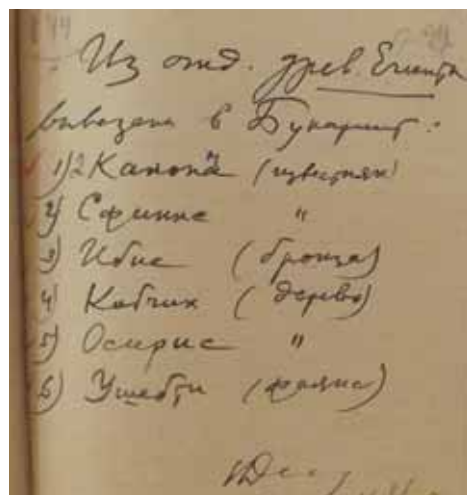 Из отд. древ. Египта
вывезены в Бухарест:
1) 2 Канопа (известняк)
2) Сфинкс "
3) Ибис (бронза)
4) Кобчик (дерево)
5) Осирис "
6) Ушебти (фаянс)